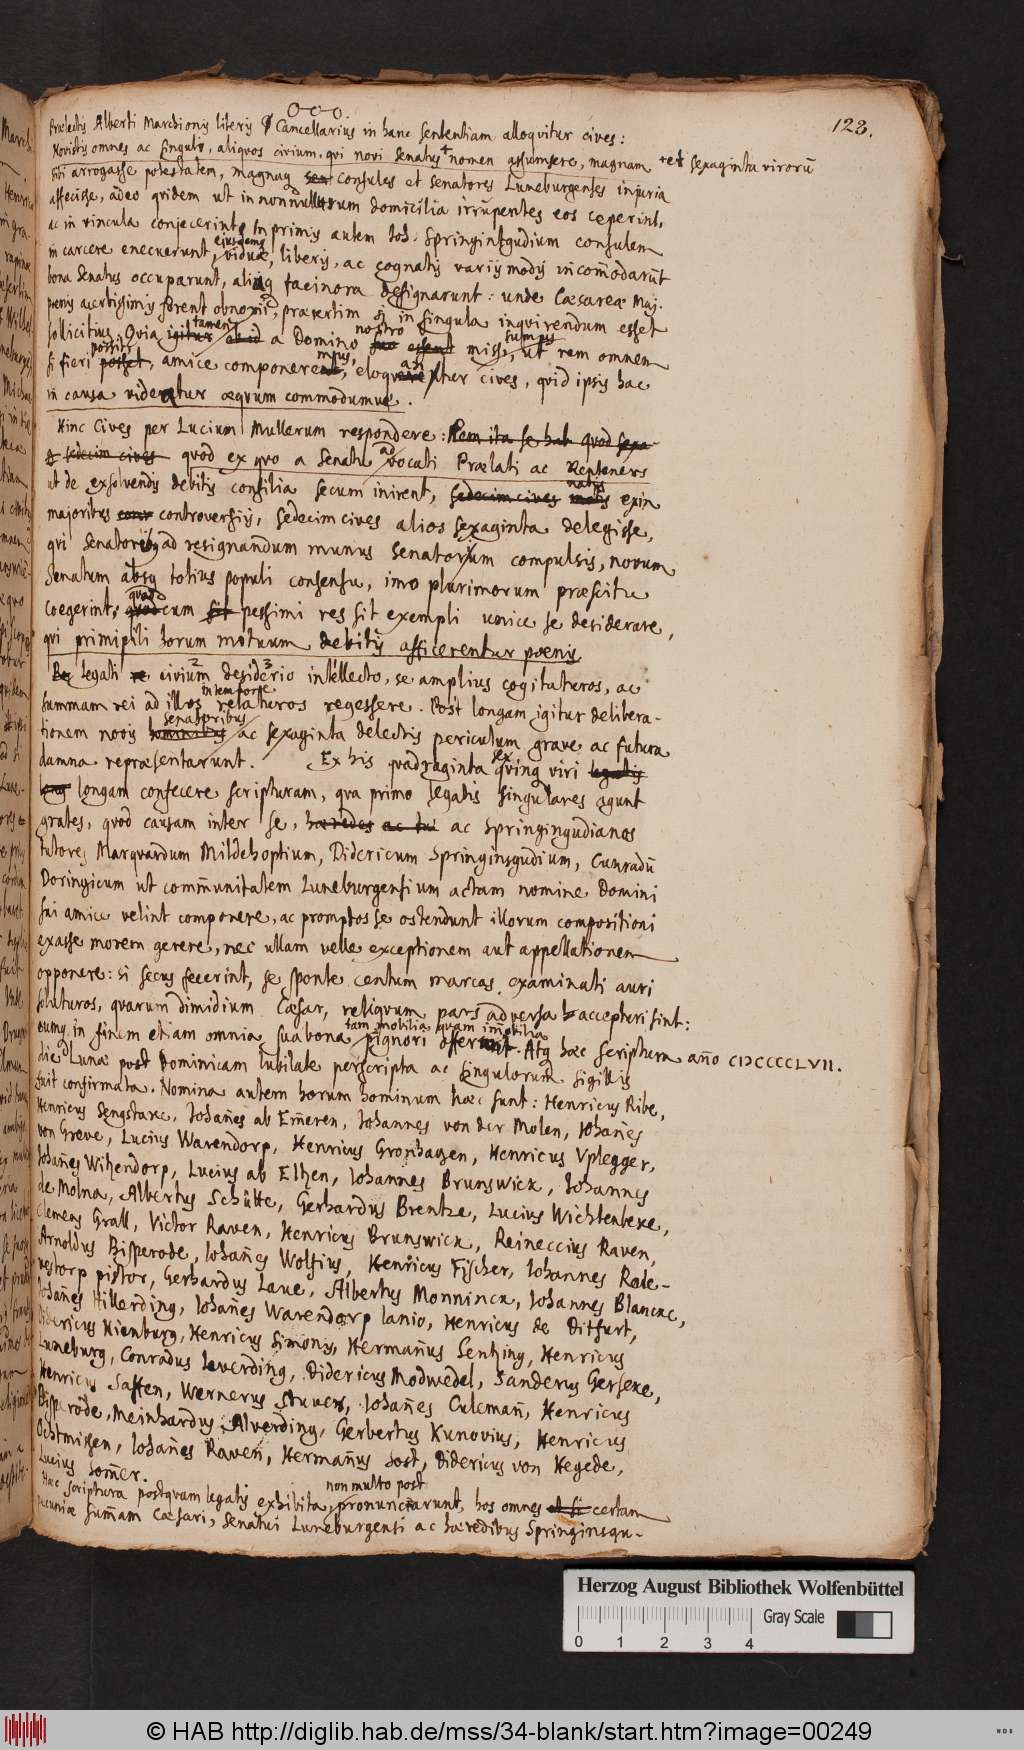 123.
Prælectis Alberti Marchionis literis Cancellarius in hanc sententiam alloquitur cives:
Novistis omnes ac singuli, aliquos civium, qui novi Senatus + nomen assumsere, magnam + et sexaginta virorū
sibi arrogasse potestatem, magnaq consules et Senatores Luneburgenses injuria
affecisse, adeo quidem ut in nonnullorum domicilia irrumpentes eos ceperint,
ac in vincula conjecerint. Inprimis autem Joh: Springintgudium consulem
in carcere enecuerunt, ejusdemq viduæ, liberis, ac cognatis variis modis incom̄odarūt
bona Senatus occuparunt, aliaq facinora designarunt: unde Cæsareæ Maj.
pœnis acerbissimis forent obnoxii, præsertim si in singula inquirendum esset
sollicitius. Quia tamen a Domino nostro missi sumus, ut rem omnem
si fieri possit, amice componeremus, eloquamini cives, quid ipsis hac
in causa videatur æquum commodumve.
Hinc Cives per Lucium Mullerum respondere: Rem ita se hab quod sexa-
sedecim cives quod ex quo a Senatu advocati Prælati ac
ut de exsolvendis debitis consilia secum inirent, sedecim cives natis exin
majoribus controversiis, sedecim cives alios sexaginta delegisse,
qui Senatoribq ad resignandum munus senatorium compulsis, novum
Senatum absq totius populi consensu, imo plurimorum præscitu
coegerint, quod cum pessimi res sit exempli unice se desiderare,
qui primipili horum motuum debitis afficerentur pœnis.
legati civium desiderio intellecto, se amplius cogitaturos, ac
summam rei ad illos in tempore relaturos regessere. Post longam igitur delibera-
tionem novis Senatoribus ac sexaginta delectis periculum grave ac futura
damna repræsentarunt. Ex his quadraginta sex quinq viri legatis
longam confecere scripturam, qua primo legatis singulares agunt
grates, quod causam inter se, hæredes ac tu ac Springingudianos
tutores Marquardum Mildehoptium, Didericum Springinsgudium, Cunradū
Doringicum ut com̄unitatem Luneburgensium actam nomine Domini
sui amice velint componere, ac promptos se ostendunt illorum compositioni
exasse morem gerere, nec ullam velle exceptionem aut appellationem
opponere: si secus fecerint, se sponte centum marcas examinati auri
soluturos, quarum dimidium Cæsar, reliquum pars adversa accepturi sint:
eumq in finem etiam omnia sua bona tam mobilia quam im̄obilia pignori offerunt. Atq hæc scriptura año CIↃCCCCLVII.
die Lunæ post Dominicam Jubilate perscripta ac singulorum sigillis
fuit confirmata. Nomina autem horum hominum hæc sunt: Henricus Ribe,
Henricus Sengstake, Johañes ab Em̄eren, Johannes von der Molen, Johañes
von Greve, Lucius Warendorp, Henricus Gronhagen, Henricus Uplegger,
Johañes Wihendorp, Lucius ab Elhen, Johannes Brunswick, Johannes
de Molna, Albertus Schütte, Gerhardus Brentze, Lucius Wichtenbeke,
Clemens Grall, Victor Raven, Henricus Brunswick, Reineccius Raven,
Arnoldus Bisperode, Johañes Wolfius, Henricus Fischer, Johannes Rale-
vestorp pistor, Gerhardus Laue, Albertus Monninck, Johannes Blancke,
Johañes Hillerding, Johañes Warendorp lanio, Henricus de Ditfurt,
Didericus Nienburg, Henricus Simonis, Hermañus Senhing, Henricus
Luneburg, Conradus Leverding, Didericus Modwedel, Sanderus Gerseke,
Henricus Sassen, Wernerus Stuven, Johañes Culemañ, Henricus
Bisperode, Meinhardus Alverding, Gerbertus Kunovius, Henricus
Ochtmissen, Johañes Raven, Hermañus Sost, Didericus von Hegede,
Lucius Som̄er.
Hæc scriptura postquam legatis exhibita, non multo post pronunciarunt, hos omnes certam
pecuniæ sum̄am Cæsari, Senatui Luneburgensi ac hæredibus Springinsgu-
Herzog August Bibliothek Wolfenbüttel
Gray Scale
0 1 2 3 4
© HAB http://diglib.hab.de/mss/34-blank/start.htm?image=00249
WDB